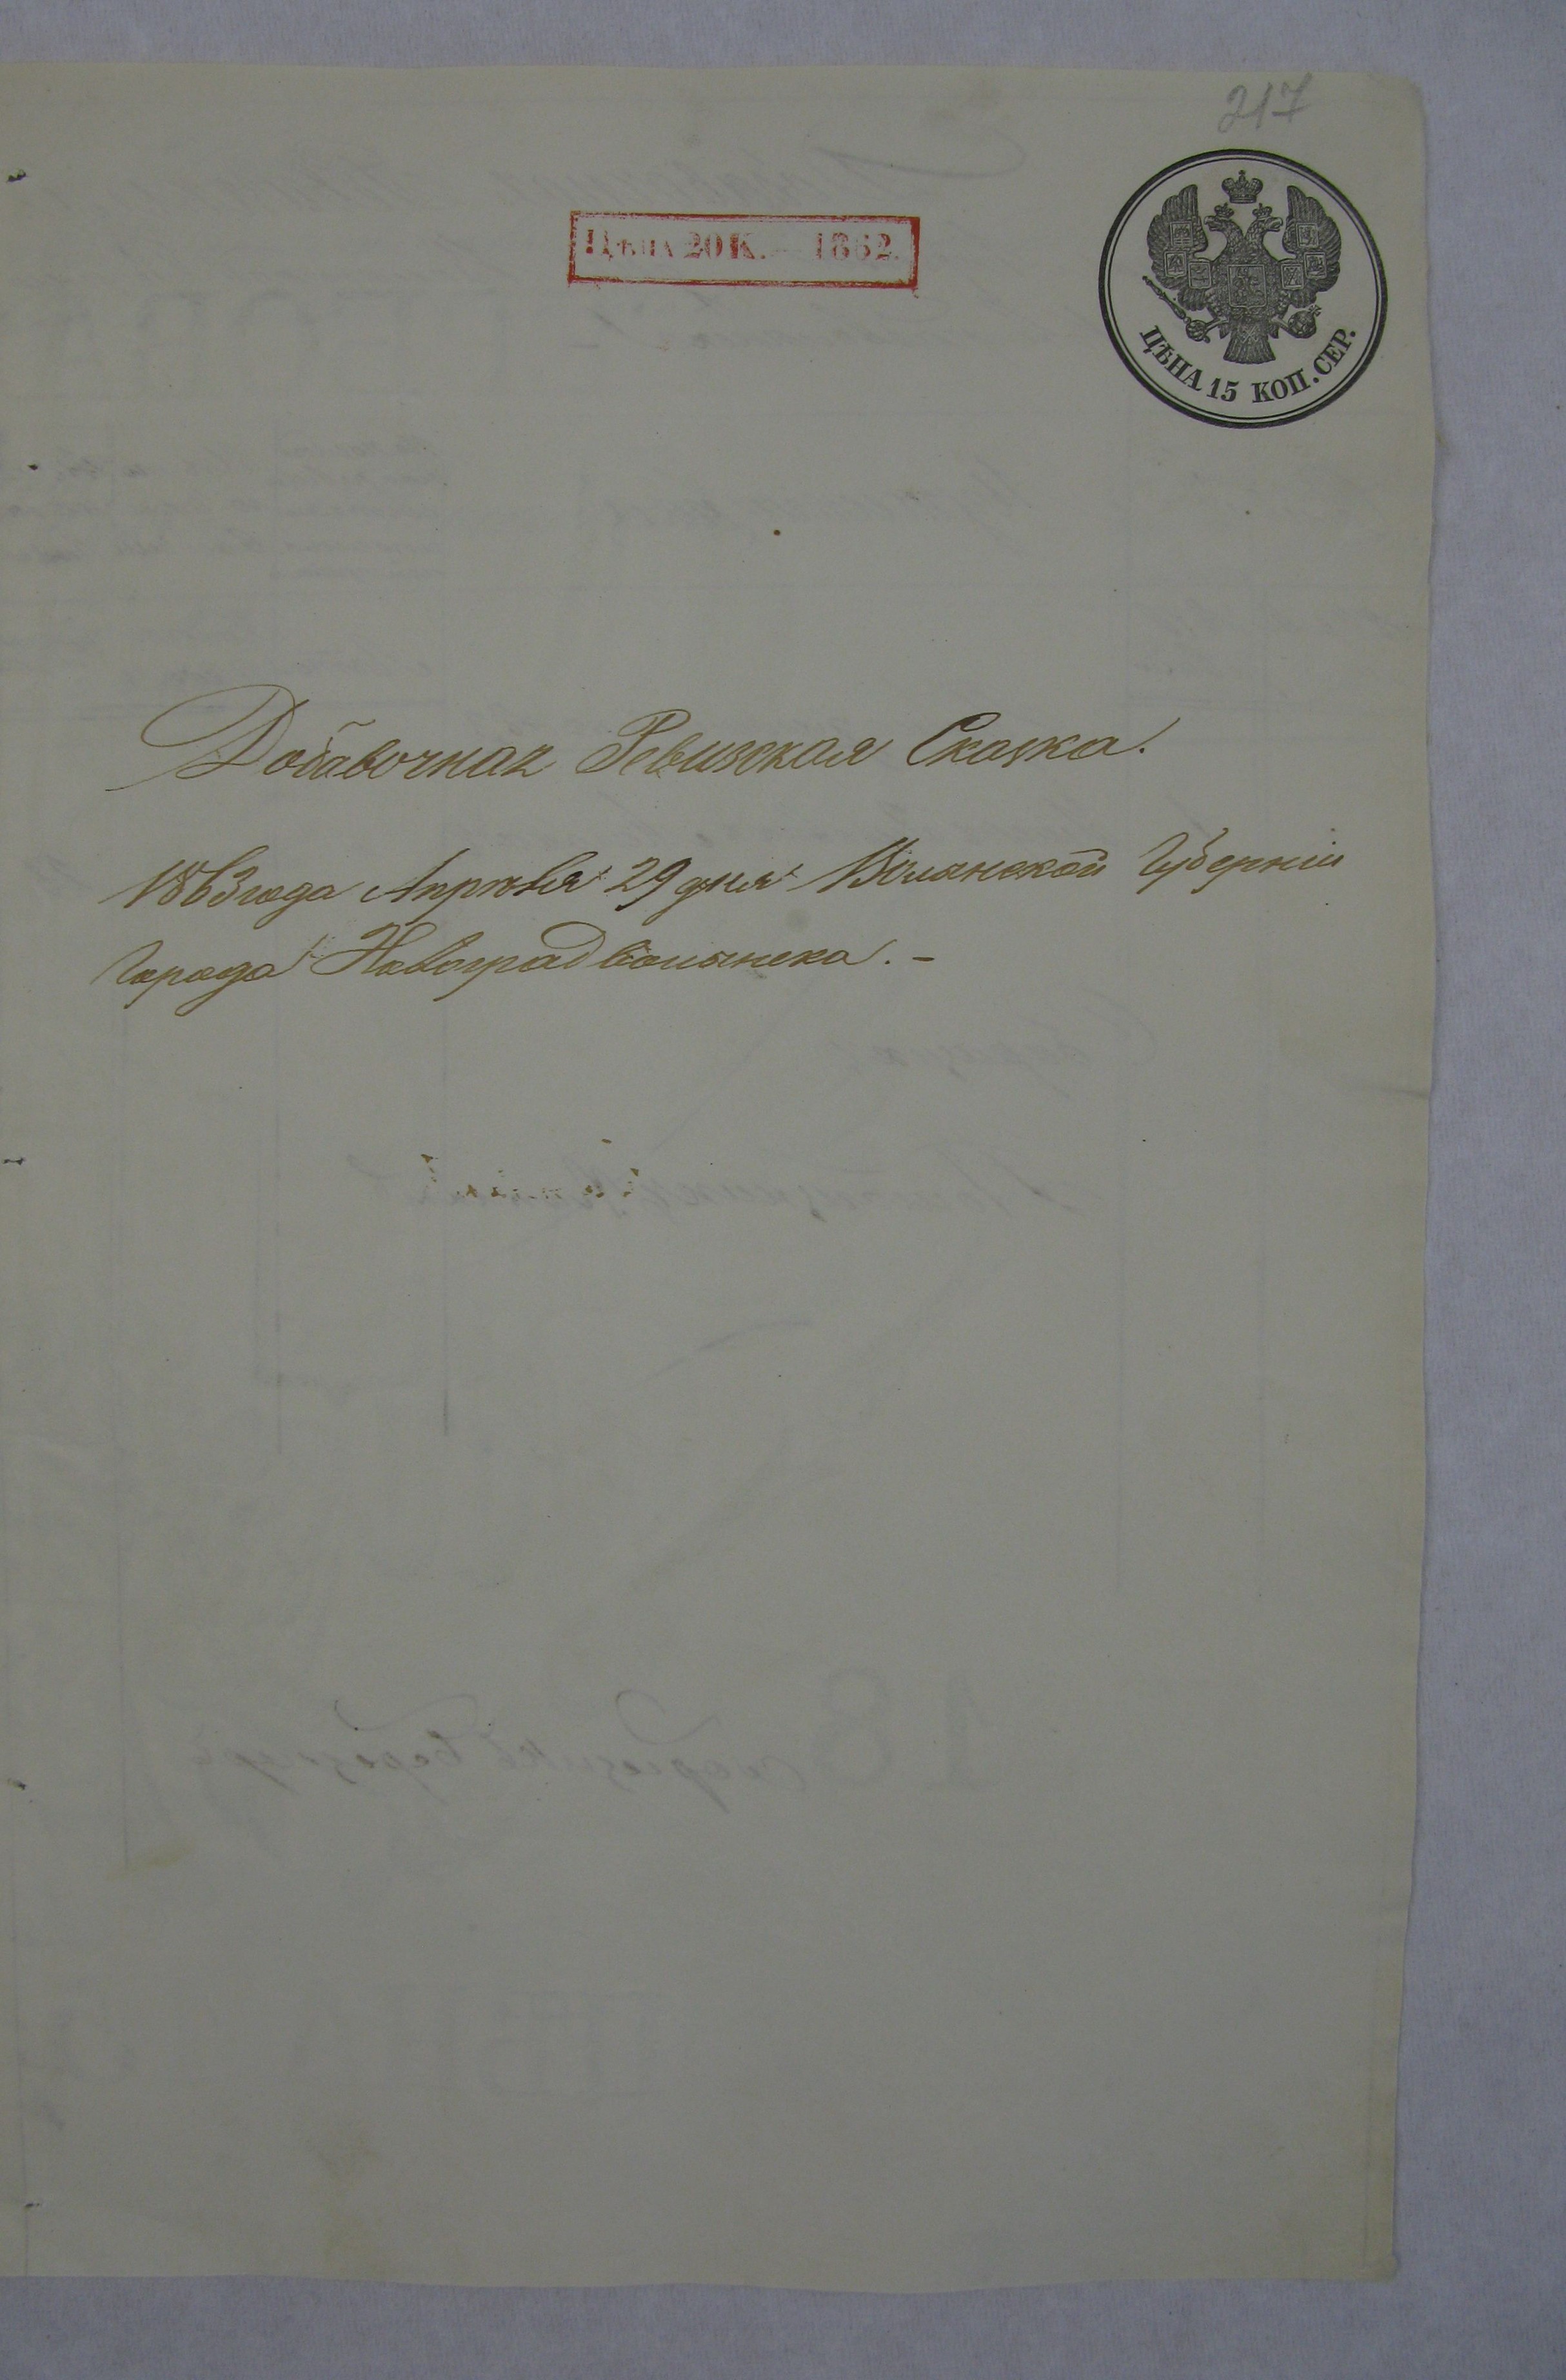 217
Цѣна 20 К. — 1862.
ЦѢНА 15 КОП. СЕР.
Добавочная Ревизская Сказка.
1863 года Апрѣля 29 дня Волынской Губерніи
Города Новоградволынска. –